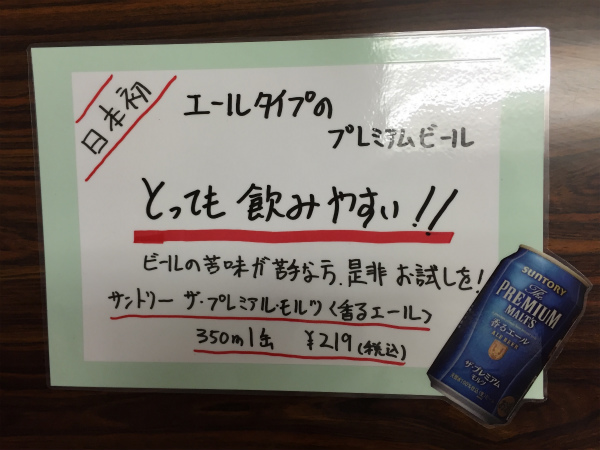 日本初
エールタイプの
プレミアムビール
とっても飲みやすい!!
ビールの苦味が苦手な方、是非お試しを!
サントリー ザ・プレミアム・モルツ〈香るエール〉
350ml缶 ¥219(税込)
SUNTORY
The
PREMIUM
MALT'S
香るエール
ザ・プレミアム
モルツ